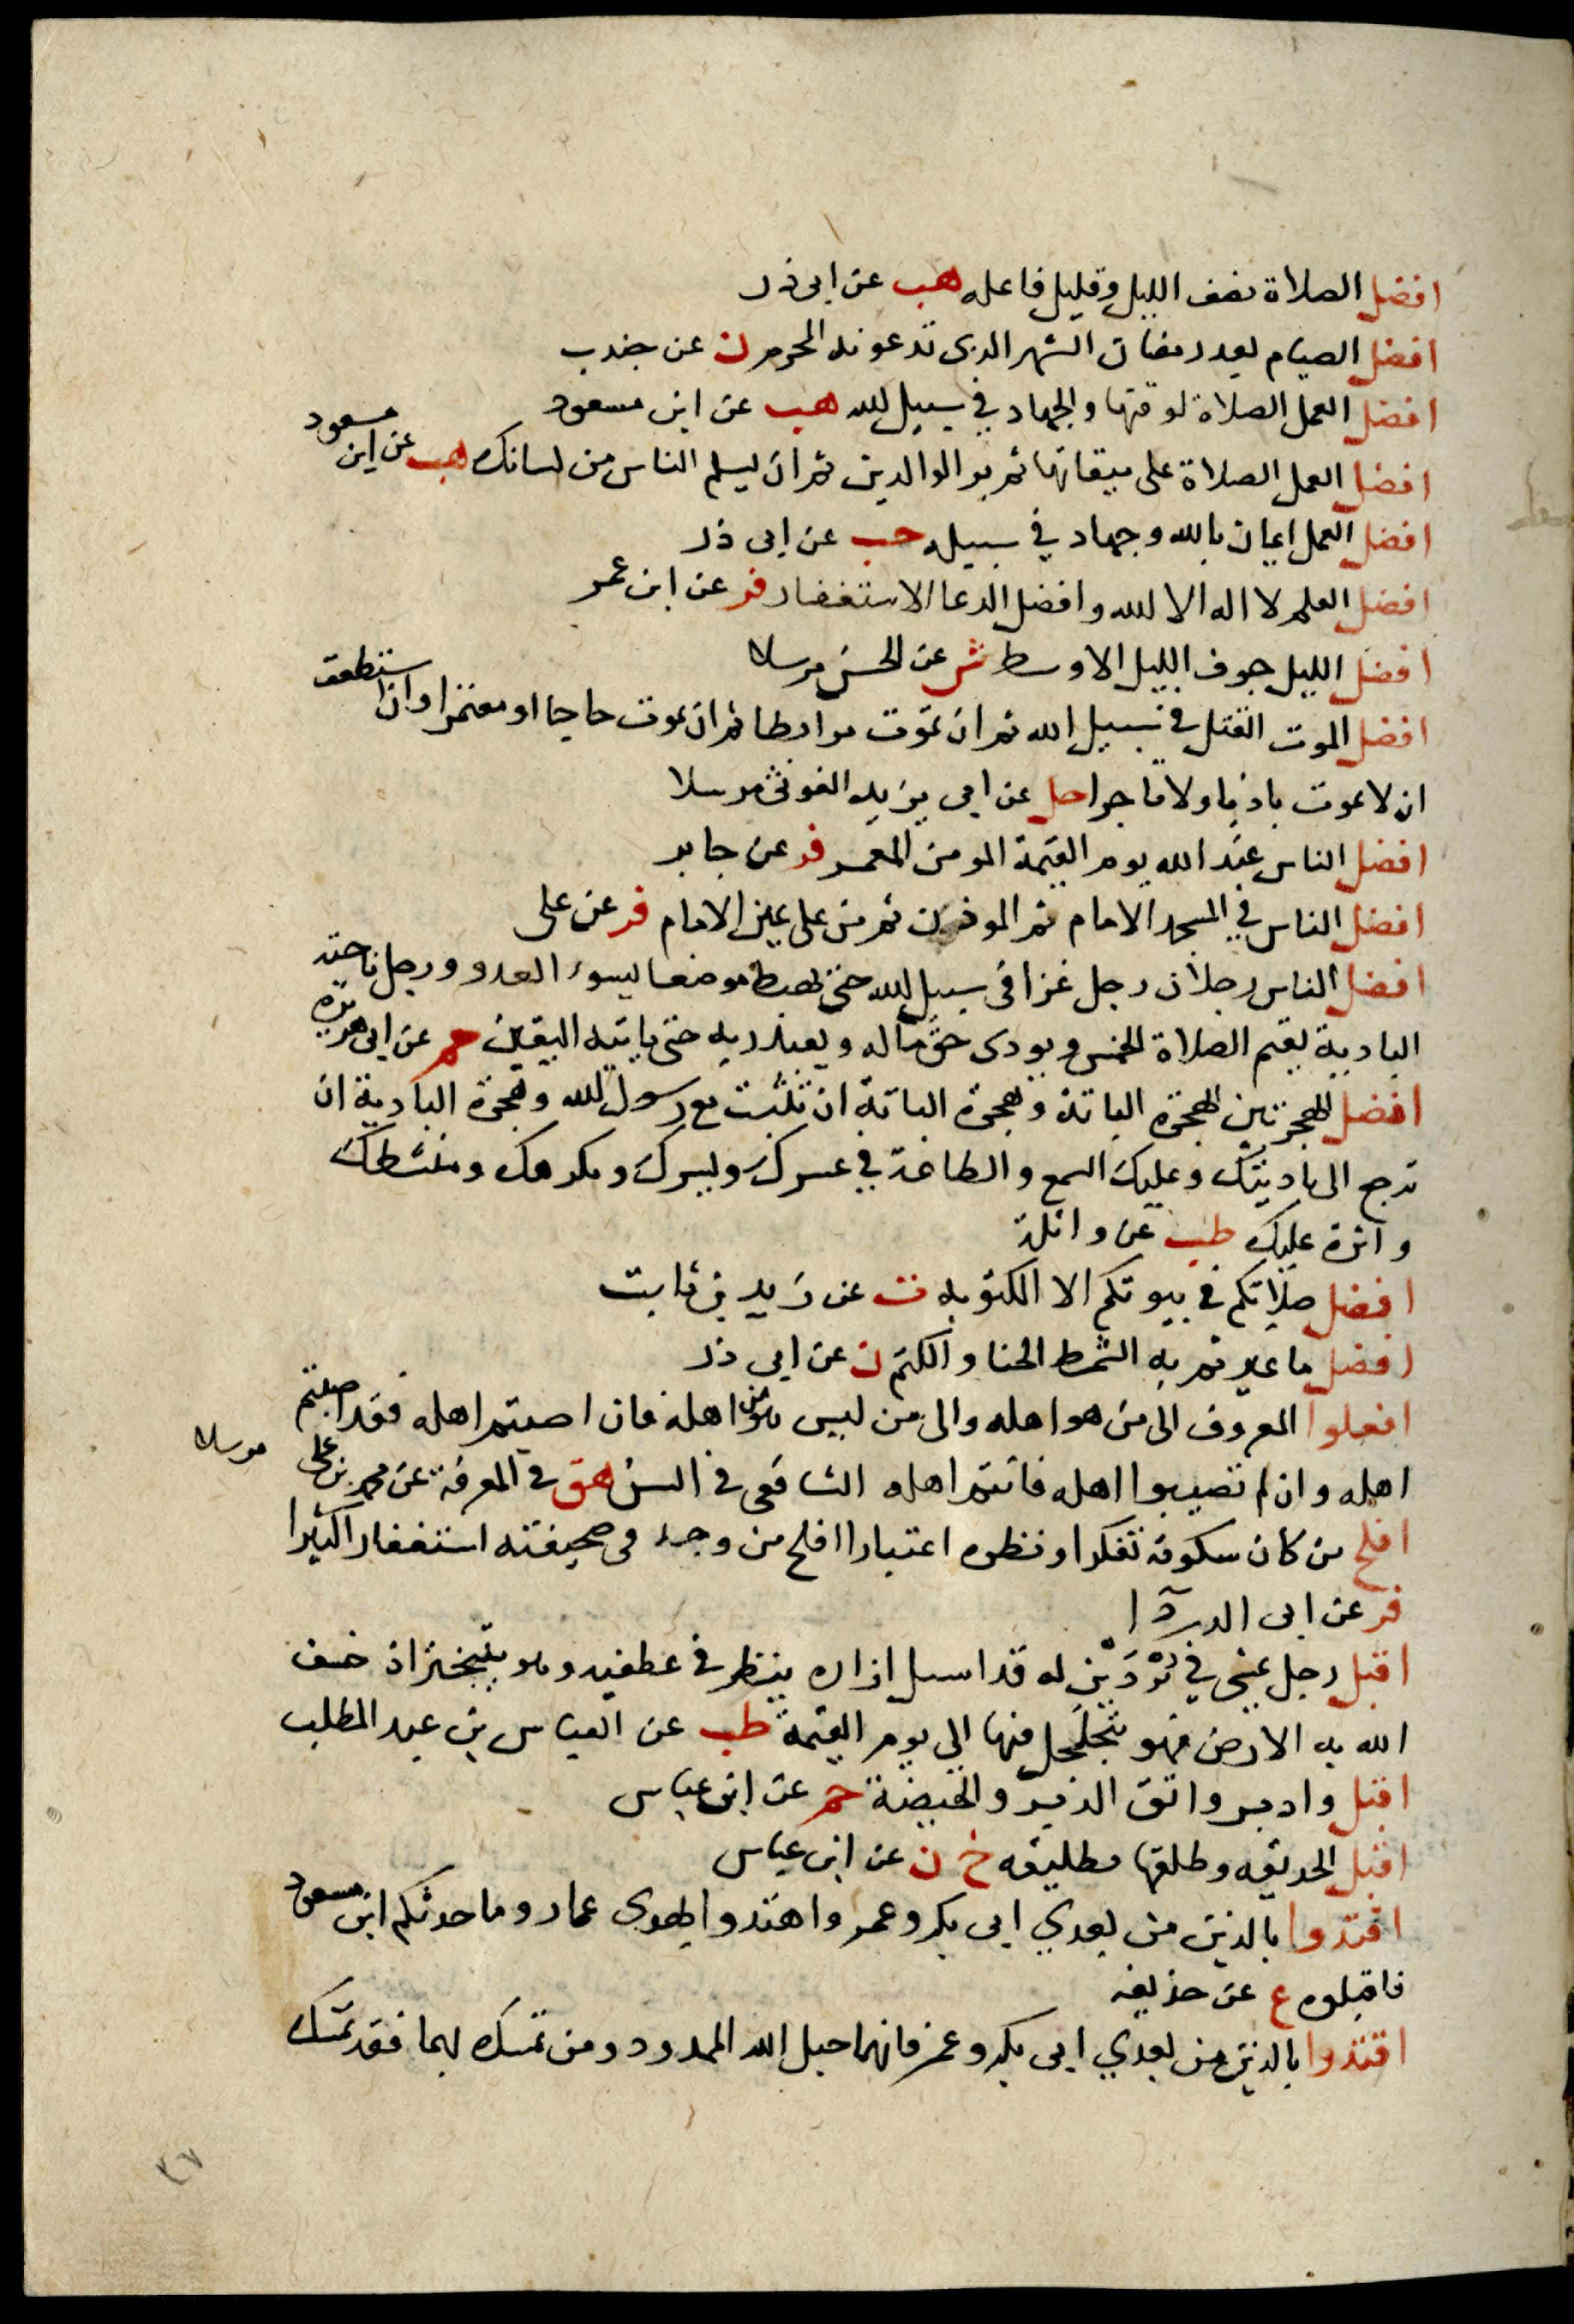 افضل الصلاة نصف الليل وقليل فاعله هب عن ابى ذر
افضل الصيام بعد رمضان الشهر الذى تدعونه المحرم ن عن جندب
افضل العمل الصلاة لوقتها والجهاد في سبيل الله هب عن ابن مسعود
افضل العمل الصلاة على ميقاتها ثم بر الوالدين ثم ان يسلم الناس من لسانك هب عن ابن مسعود
افضل العمل ايمان بالله وجهاد في سبيله حب عن ابى ذر
افضل العلم لا اله الا الله وافضل الدعا الاستغفار فر عن ابن عمر
افضل الليل جوف الليل الاوسط ش عن الحسن مرسلا
افضل الموت القتل في سبيل الله ثم ان تموت مرابطا ثم ان تموت حاجا او معتمرا وان استطعت
ان لا تموت باديا ولا تاجرا حل عن ابى يزيد الغوثى مرسلا
افضل الناس عند الله يوم القيمة المومن المعمر فر عن جابر
افضل الناس في المسجد الامام ثم الموذن ثم من على يمين الامام فر عن على
افضل الناس رجلان رجل غزا فى سبيل الله حتى يهبط موضعا يسوء العدو ورجل ناحية
البادية يقيم الصلاة الخمس ويودى حق ماله ويعبد ربه حتى ياتيه اليقين حم عن ابى هريرة
افضل الهجرتين الهجرة الباتة وهجرة الباتة ان تثبت مع رسول الله وهجرة البادية ان
ترجع الى باديتك وعليك السمع والطاعة في عسرك ويسرك ومكرهك ومنشطك
واثرة عليك طب عن واثلة
افضل صلاتكم في بيوتكم الا المكتوبه ت عن زيد بن ثابت
افضل ما غيرتم به الشمط الحنا والكتم ن عن ابى ذر
افعلوا المعروف الى من هو اهله والى من ليس هو من اهله فان اصبتم اهله فقد اصبتم
اهله وان لم تصيبوا اهله فانتم اهله الشافعى فى السنن هق في المعرفة عن محمد بن على مرسلا
افلح من كان سكوته تفكرا ونظره اعتبارا افلح من وجد فى صحيفته استغفارا كثيرا
فر عن ابى الدردآ
اقبل رجل يمشى في بردين له قد اسبل ازاره ينظر في عطفيه وهو يتبختر اذ خسف
الله به الارض فهو يتجلجل فيها الى يوم القيمة طب عن العباس بن عبد المطلب
اقبل وادبر واتق الدبر والحيضة حم عن ابن عباس
اقبل الحديقه وطلقها تطليقه خ ن عن ابن عباس
اقتدوا بالذين من بعدي ابى بكر وعمر واهتدوا بهدى عمار وما حدثكم ابن مسعود
فاقبلوه ع عن حذيفه
اقتدوا بالذين من بعدي ابى بكر وعمر فانهما حبل الله الممدود ومن تمسك بهما فقد تمسك
٣٧